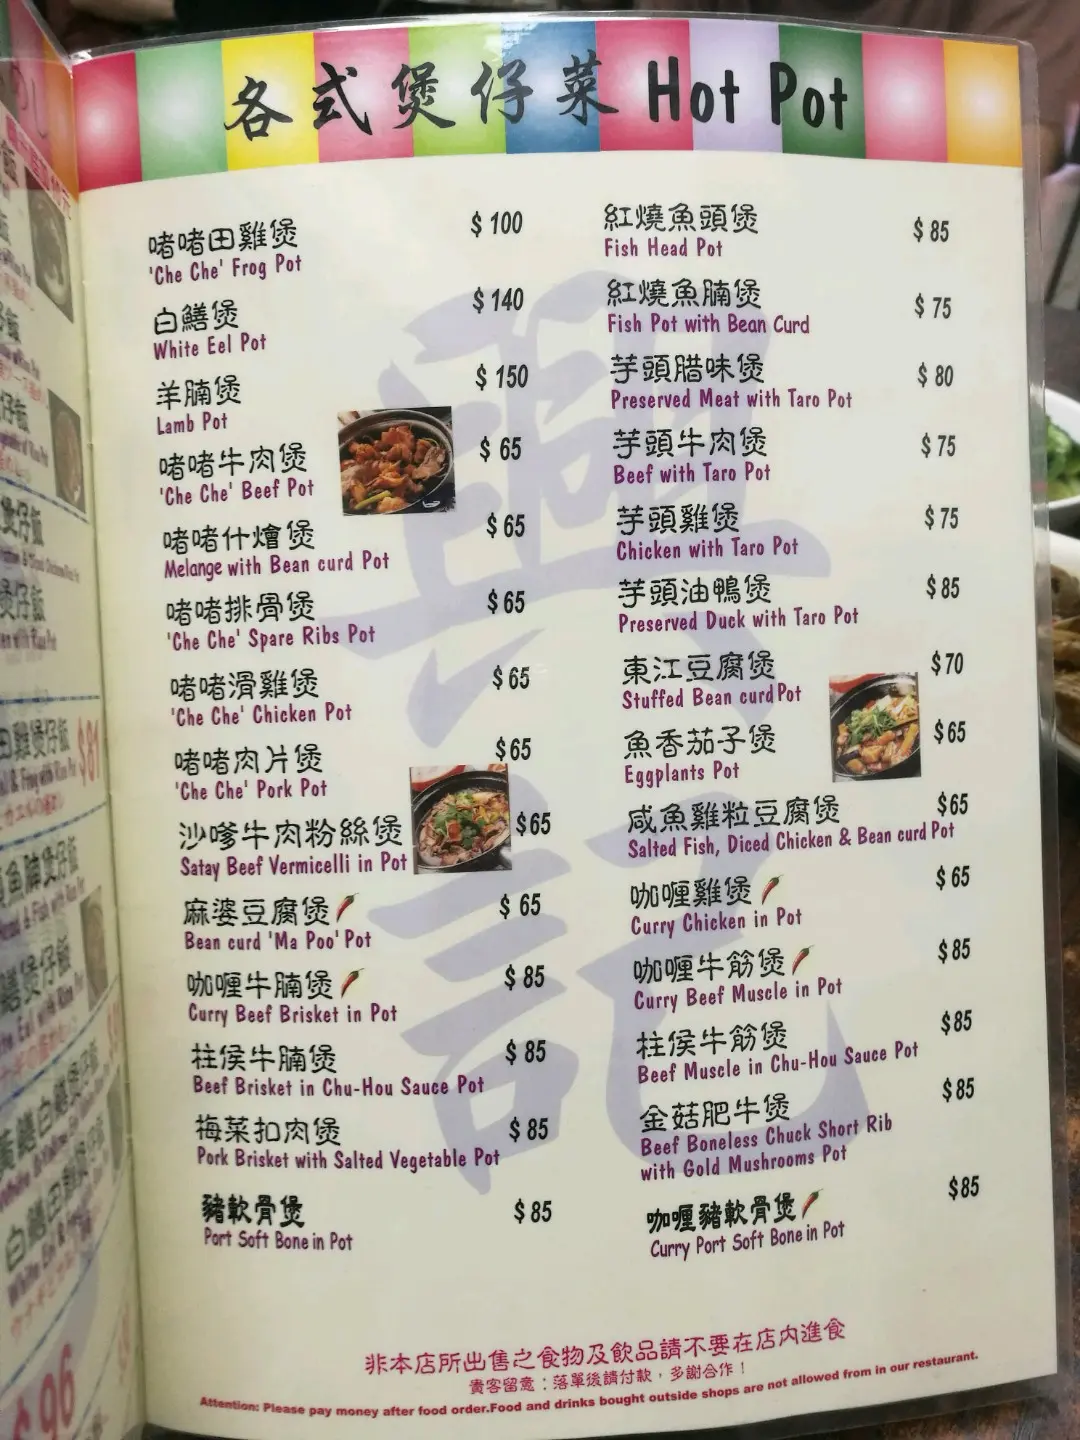 各式煲仔菜 Hot Pot
啫啫田雞煲 $ 100
'Che Che' Frog Pot
白鱔煲 $ 140
White Eel Pot
羊腩煲 $ 150
Lamb Pot
啫啫牛肉煲 $ 65
'Che Che' Beef Pot
啫啫什燴煲 $ 65
Melange with Bean curd Pot
啫啫排骨煲 $ 65
'Che Che' Spare Ribs Pot
啫啫滑雞煲 $ 65
'Che Che' Chicken Pot
啫啫肉片煲 $ 65
'Che Che' Pork Pot
沙嗲牛肉粉絲煲 $65
Satay Beef Vermicelli in Pot
麻婆豆腐煲 $ 65
Bean curd 'Ma Poo' Pot
咖喱牛腩煲 $ 85
Curry Beef Brisket in Pot
柱侯牛腩煲 $ 85
Beef Brisket in Chu-Hou Sauce Pot
梅菜扣肉煲 $ 85
Pork Brisket with Salted Vegetable Pot
豬軟骨煲 $ 85
Port Soft Bone in Pot
紅燒魚頭煲 $ 85
Fish Head Pot
紅燒魚腩煲 $ 75
Fish Pot with Bean Curd
芋頭腊味煲 $ 80
Preserved Meat with Taro Pot
芋頭牛肉煲 $ 75
Beef with Taro Pot
芋頭雞煲 $ 75
Chicken with Taro Pot
芋頭油鴨煲 $ 85
Preserved Duck with Taro Pot
東江豆腐煲 $ 70
Stuffed Bean curd Pot
魚香茄子煲 $ 65
Eggplants Pot
咸魚雞粒豆腐煲 $65
Salted Fish, Diced Chicken & Bean curd Pot
咖喱雞煲 $ 65
Curry Chicken in Pot
咖喱牛筋煲 $ 85
Curry Beef Muscle in Pot
柱侯牛筋煲 $85
Beef Muscle in Chu-Hou Sauce Pot
金菇肥牛煲 $85
Beef Boneless Chuck Short Rib
with Gold Mushrooms Pot
咖喱豬軟骨煲 $85
Curry Port Soft Bone in Pot
興記
非本店所出售之食物及飲品請不要在店內進食
貴客留意：落單後請付款，多謝合作！
Attention: Please pay money after food order.Food and drinks bought outside shops are not allowed from in our restaurant.
田雞煲仔飯 $81